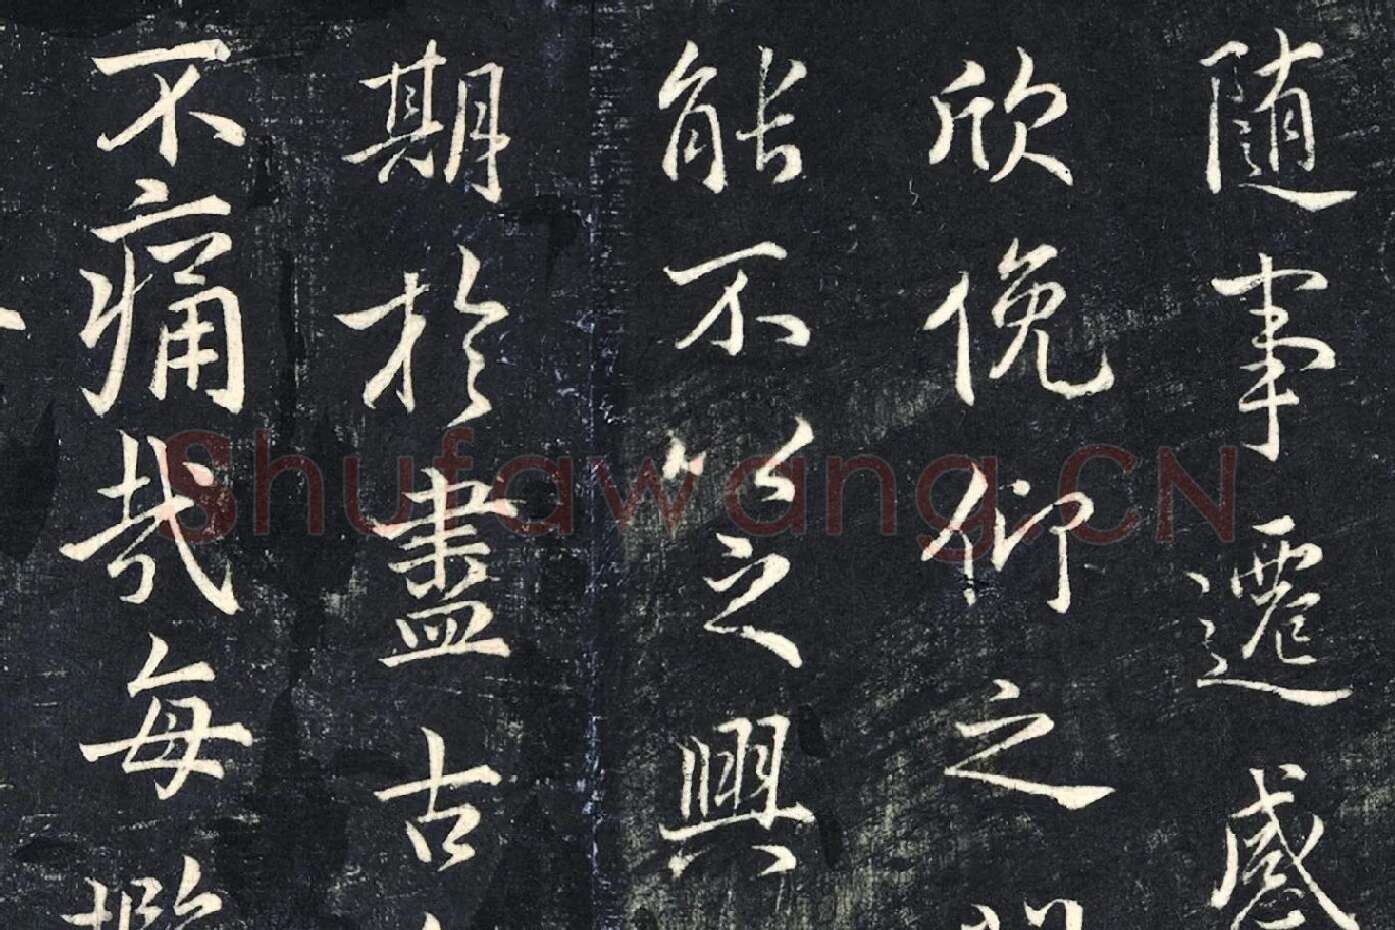 随事遷感
欣俛仰之
能不以之興
期於盡古
不痛哉每攬
Shufawang.CN